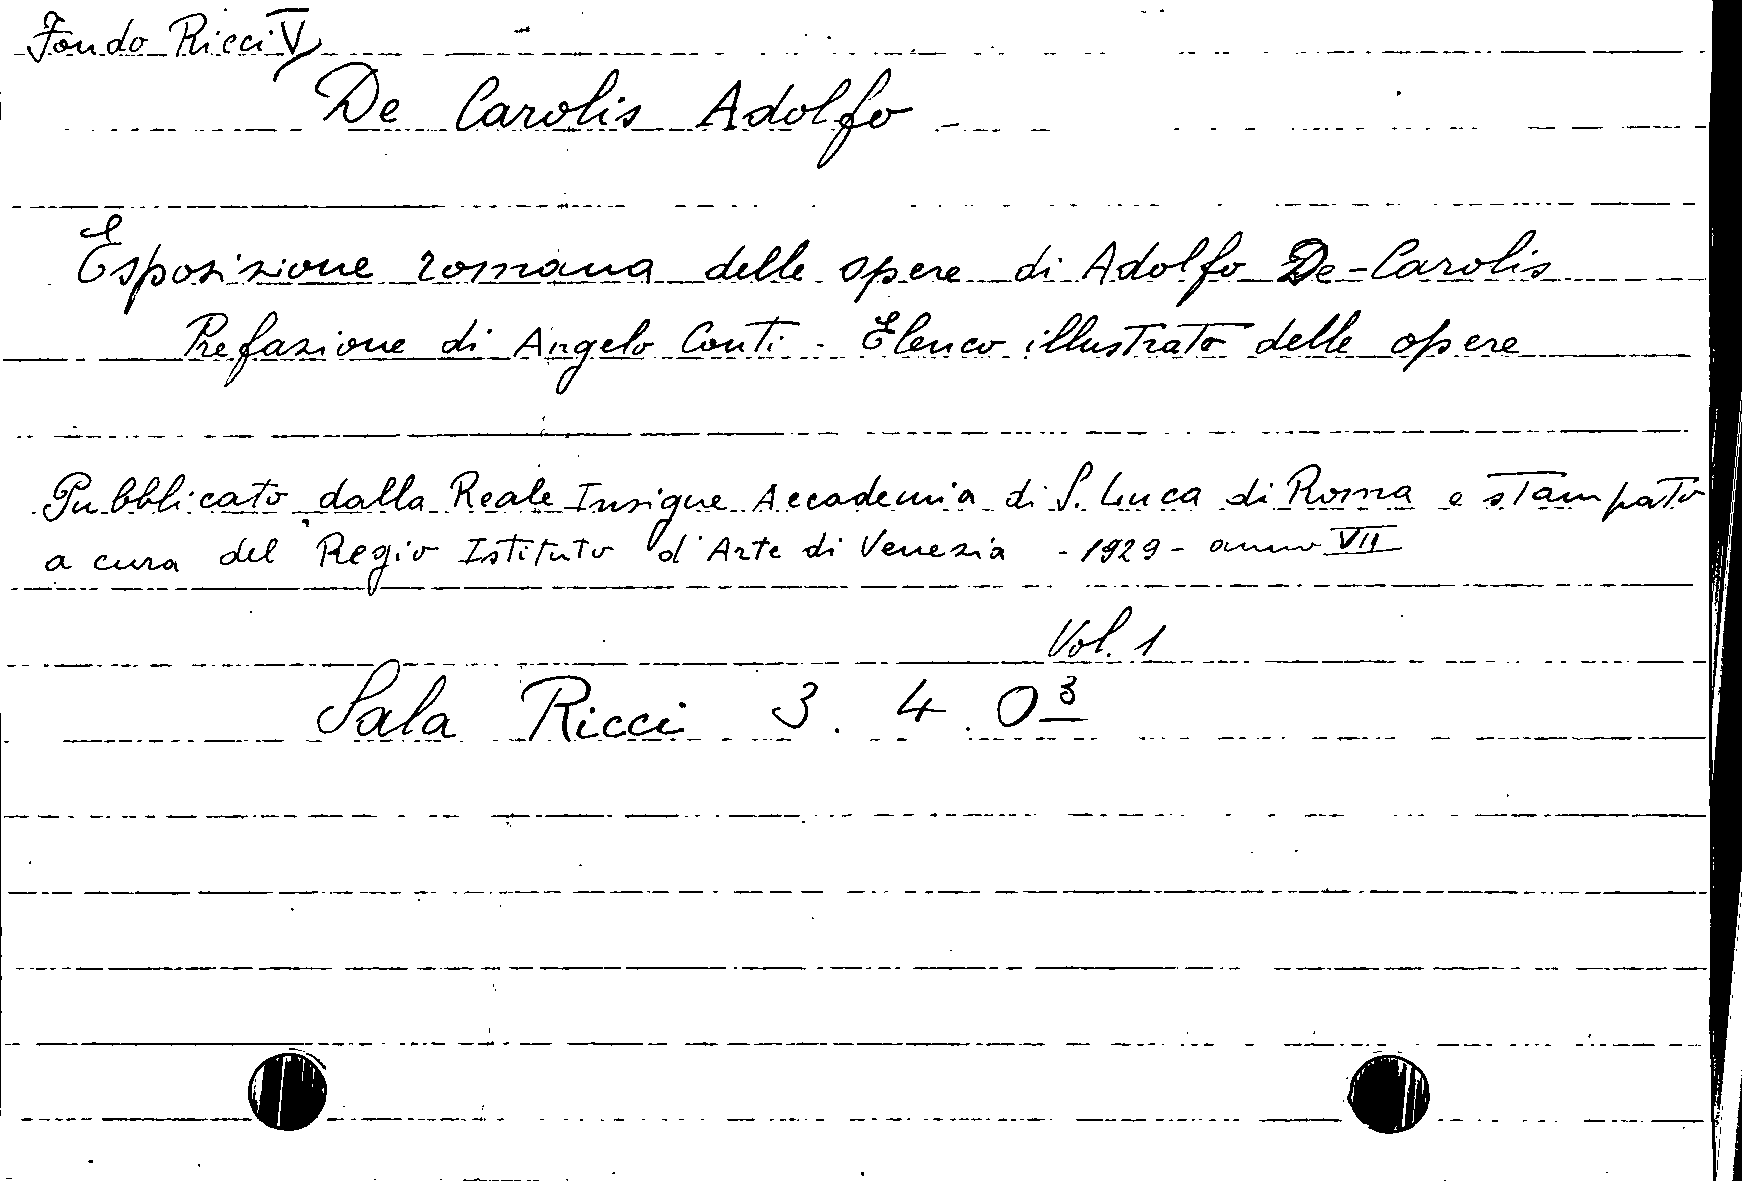 Fondo Ricci V
De Carolis Adolfo
Esposizione romana delle opere di Adolfo De-Carolis
Prefazione di Angelo Conti - Elenco illustrato delle opere
Pubblicato dalla Reale Insigne Accademia di S. Luca di Roma e stampato
a cura del Regio Istituto d'Arte di Venezia - 1929 - anno VII
Vol. 1
Sala Ricci 3. 4. O 3